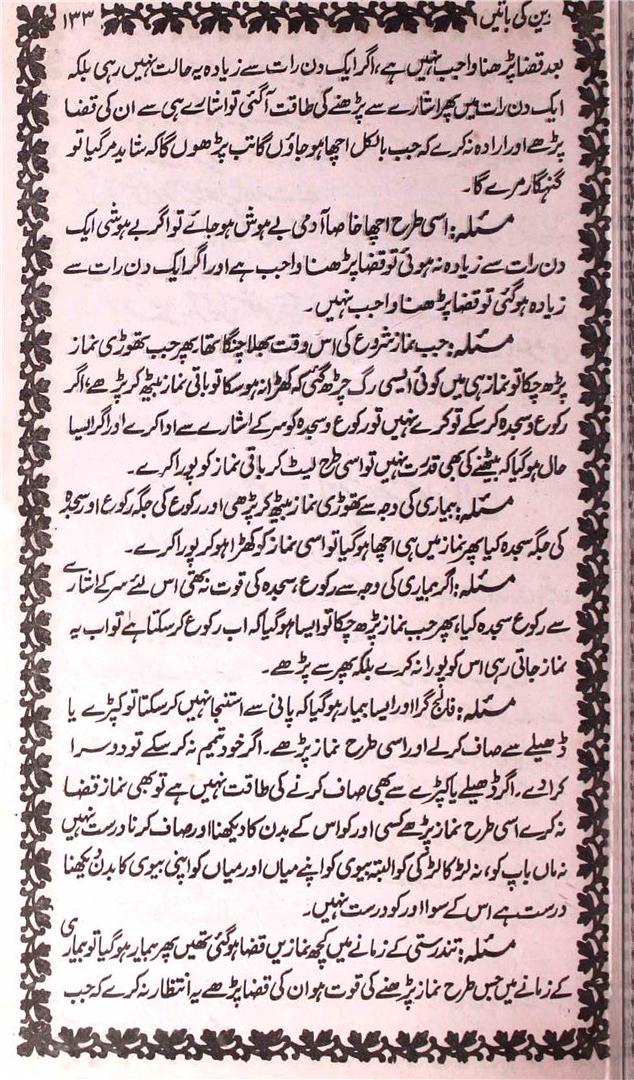 دین کی باتیں ۱۳۳
بعد قضا پڑھنا واجب نہیں ہے، اگر ایک دن رات سے زیادہ یہ حالت نہیں رہی بلکہ
ایک دن رات میں پھر اشارے سے پڑھنے کی طاقت آگئی تو اشارے ہی سے ان کی قضا
پڑھے اور ارادہ نہ کرے کہ جب بالکل اچھا ہو جاؤں گا تب پڑھوں گا کہ شاید مر گیا تو
گنہگار مرے گا۔
مسئلہ: اسی طرح اچھا خاصا آدمی بے ہوش ہو جائے تو اگر بے ہوشی ایک
دن رات سے زیادہ نہ ہوئی تو قضا پڑھنا واجب ہے اور اگر ایک دن رات سے
زیادہ ہو گئی تو قضا پڑھنا واجب نہیں۔
مسئلہ: جب نماز شروع کی اس وقت بھلا چنگا تھا پھر جب تھوڑی نماز
پڑھ چکا تو نماز ہی میں کوئی ایسی رگ چڑھ گئی کہ کھڑا نہ ہو سکا تو باقی نماز بیٹھ کر پڑھے، اگر
رکوع و سجدہ کر سکے تو کرے نہیں تو رکوع و سجدہ کو سر کے اشارے سے ادا کرے اور اگر ایسا
حال ہو گیا کہ بیٹھنے کی بھی قدرت نہیں تو اسی طرح لیٹ کر باقی نماز کو پورا کرے۔
مسئلہ: بیماری کی وجہ سے تھوڑی نماز بیٹھ کر پڑھی اور رکوع کی جگہ رکوع اور سجدہ
کی جگہ سجدہ کیا پھر نماز میں ہی اچھا ہو گیا تو اسی نماز کو کھڑا ہو کر پورا کرے۔
مسئلہ: اگر بیماری کی وجہ سے رکوع، سجدہ کی قوت نہ تھی اس لئے سر کے اشارے
سے رکوع سجدہ کیا، پھر جب نماز پڑھ چکا تو ایسا ہو گیا کہ اب رکوع کر سکتا ہے تو اب یہ
نماز جاتی رہی اس کو پورا نہ کرے بلکہ پھر سے پڑھے۔
مسئلہ: فالج گرا اور ایسا بیمار ہو گیا کہ پانی سے استنجا نہیں کر سکتا تو کپڑے یا
ڈھیلے سے صاف کر لے اور اسی طرح نماز پڑھے۔ اگر خود تیمم نہ کر سکے تو دوسرا
کرا دے۔ اگر ڈھیلے یا کپڑے سے بھی صاف کرنے کی طاقت نہیں ہے تو بھی نماز قضا
نہ کرے اسی طرح نماز پڑھے کسی اور کو اس کے بدن کا دیکھنا اور صاف کرنا درست نہیں
نہ ماں باپ کو، نہ لڑکا لڑکی کو البتہ بیوی کو اپنے میاں اور میاں کو اپنی بیوی کا بدن دیکھنا
درست ہے اس کے سوا اور کو درست نہیں۔
مسئلہ: تندرستی کے زمانے میں کچھ نمازیں قضا ہو گئی تھیں پھر بیمار ہو گیا تو بیماری
کے زمانے میں جس طرح نماز پڑھنے کی قوت ہو ان کی قضا پڑھے یہ انتظار نہ کرے کہ جب